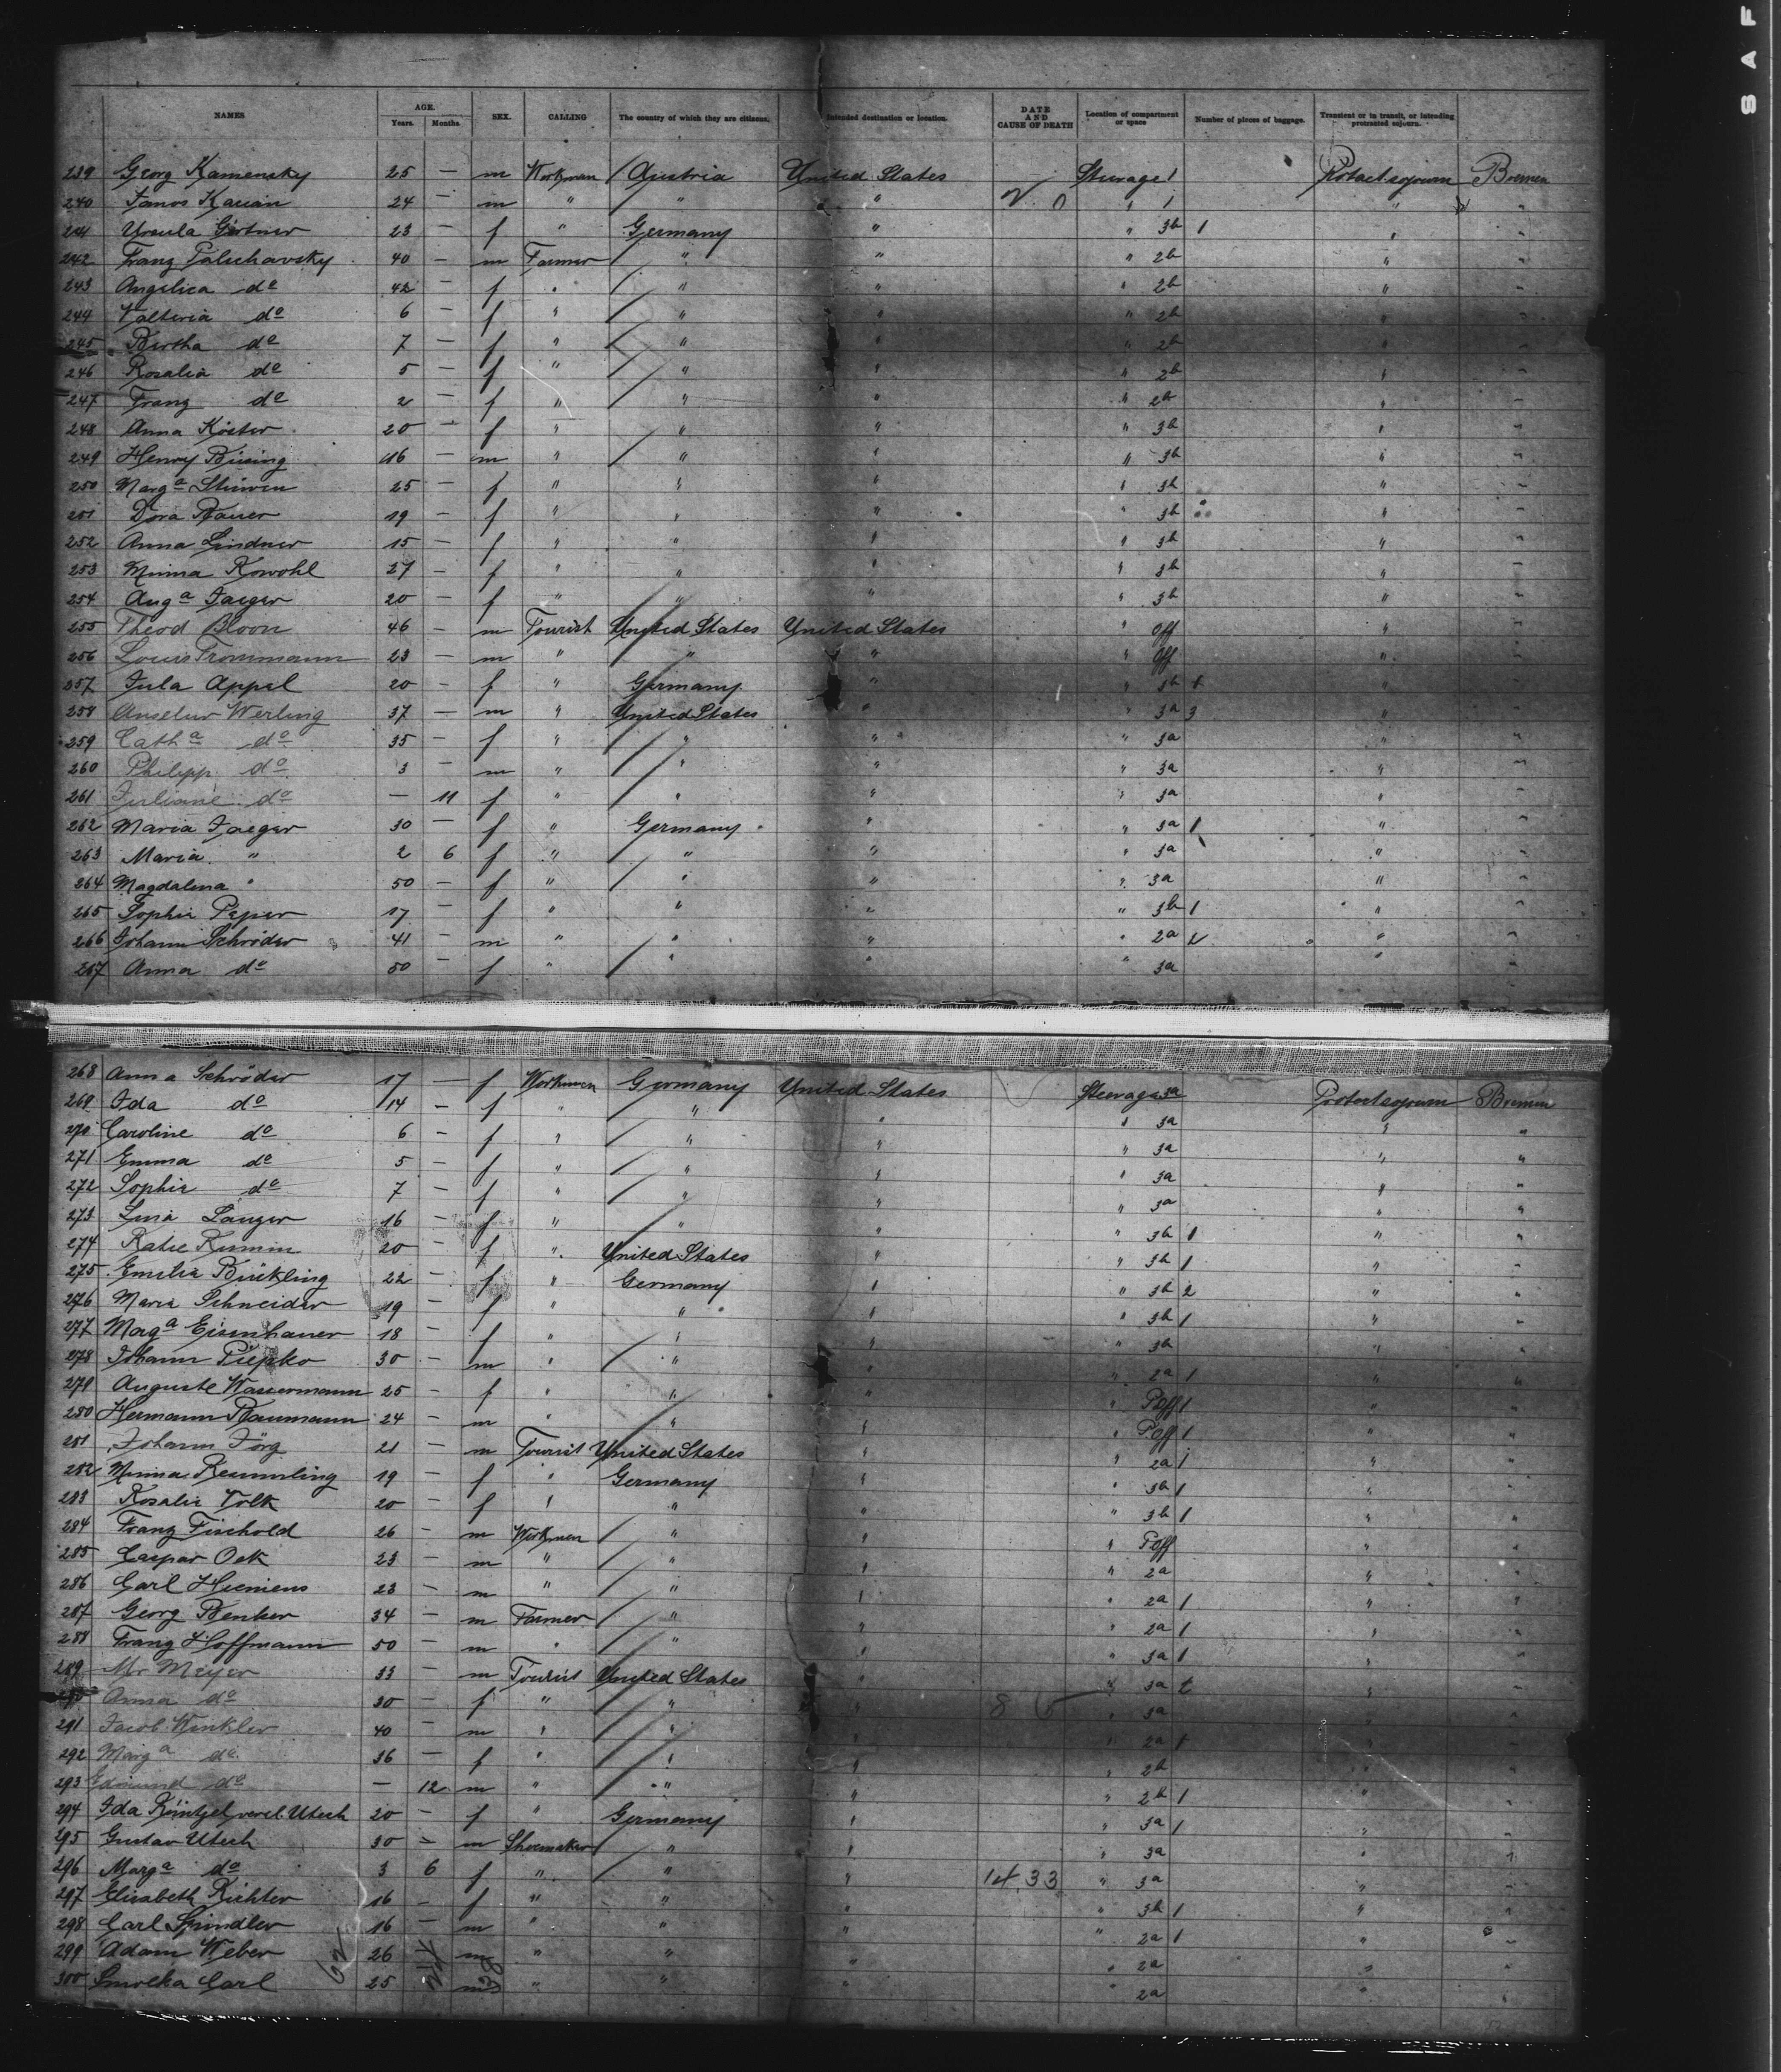 NAMES AGE. Years. Months. SEX. CALLING The country of which they are citizens. Intended destination or location. DATE AND CAUSE OF DEATH Location of compartment or space Number of pieces of baggage. Transient or in transit, or intending protracted sojourn.
239 Georg Kamensky 25 — m Workman Austria United States Steerage 1 Protact sojourn Bremen
240 Janos 24 — m " " " " 1 " "
241 Ursula 23 — f " Germany " " 3b 1 " "
242 Franz 40 — m Farmer " " " 2b " "
243 Angelica do 42 — f " " " " 2b " "
244 do 6 — f " " " " 2b " "
245 Bertha do 7 — f " " " " 2b " "
246 Rosalia do 5 — f " " " " 2b " "
247 Franz do 2 — f " " " " 2b " "
248 Anna Köster 20 — f " " " " 3b " "
249 Henry Büsing 16 — m " " " " 3b " "
250 Marga Stüwen 25 — f " " " " 3b " "
251 Dora Bauer 19 — f " " " " 3b " "
252 Anna Lindner 15 — f " " " " 3b " "
253 Minna Kowohl 27 — f " " " " 3b " "
254 Auga Jaeger 20 — f " " " " 3b " "
255 Theod Bloon 46 — m Tourist United States United States " Off " "
256 Louis Trommann 23 — m " " " " Off " "
257 Jula Appel 20 — f " Germany " " 3b 1 " "
258 Werling 37 — m " United States " " 3a 3 " "
259 Catha do 35 — f " " " " 3a " "
260 Philipp do 3 — m " " " " 3a " "
261 Juliane do — 11 f " " " " 3a " "
262 Maria Jaeger 30 — f " Germany " " 3a 1 " "
263 Maria " 2 6 f " " " " 3a " "
264 Magdalena " 50 — f " " " " 3a " "
265 Sophie Peper 17 — f " " " " 3b 1 " "
266 Johann Schröder 41 — m " " " " 2a 2 " "
267 Anna do 50 — f " " " " 3a " "
268 Anna Schröder 17 — f Workmen Germany United States Steerage 3a Protact sojourn Bremen
269 Ida do 14 — f " " " " 3a " "
270 Caroline do 6 — f " " " " 3a " "
271 Emma do 5 — f " " " " 3a " "
272 Sophie do 7 — f " " " " 3a " "
273 Lina Langer 16 — f " " " " 3b 1 " "
274 Katie 20 — f " United States " " 3b 1 " "
275 Emilie Bückling 22 — f " Germany " " 3b 2 " "
276 Marie Schneider 19 — f " " " " 3b 1 " "
277 Marga Eisenhauer 18 — f " " " " 3b " "
278 Johann Piepko 30 — m " " " " 2a 1 " "
279 Auguste Wassermann 25 — f " " " " Poff 1 " "
280 Hermann Baumann 24 — m " " " " Poff 1 " "
281 Johann Jörg 21 — m Tourist United States " " 2a 1 " "
282 Minna Remmling 19 — f " Germany " " 3b 1 " "
283 Rosalie Volk 20 — f " " " " 3b 1 " "
284 Franz Fischold 26 — m Workmen " " " Poff " "
285 Caspar Oek 23 — m " " " " 2a " "
286 Carl 23 — m " " " " 2a 1 " "
287 Georg Benker 34 — m Farmer " " " 2a 1 " "
288 Franz Hoffmann 50 — m " " " " 3a 1 " "
289 Mr Meyer 33 — m Tourist United States " " 3a " "
290 Anna do 30 — f " " " " 3a " "
291 Jacob Winkler 40 — m " " " " 2a 1 " "
292 Marga do 36 — f " " " " 2b " "
293 Edmund do — 12 m " " " " 2b 1 " "
294 Ida Küntzel verel. Utech 20 — f " Germany " " 3a 1 " "
295 Gustav Utech 30 — m Shoemaker " " " 3a " "
296 Marga do 3 6 f " " " 14 33 " 3a " "
297 Elisabeth Richter 16 — f " " " " 3b 1 " "
298 Carl Spindler 16 — m " " " " 2a 1 " "
299 Adam Weber 26 m " " " " 2a " "
300 Smolka Carl 25 m " " " " 2a " "